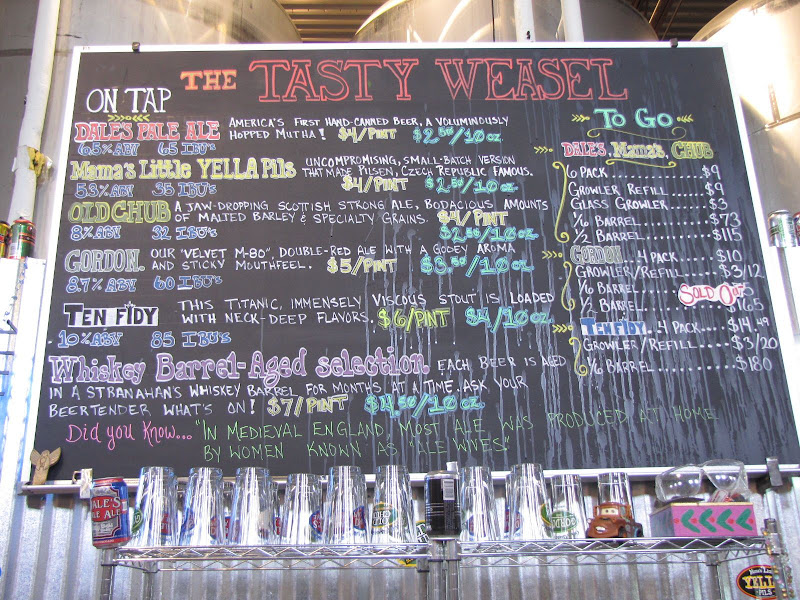 THE TASTY WEASEL
ON TAP
DALE'S PALE ALE AMERICA'S FIRST HAND-CANNED BEER, A VOLUMINOUSLY
HOPPED MUTHA! $4/PINT $2.50/10 oz.
6.5% ABV 65 IBU'S
Mama's Little YELLA Pils UNCOMPROMISING, SMALL-BATCH VERSION
THAT MADE PILSEN, CZECH REPUBLIC FAMOUS.
$4/PINT $2.50/10 oz.
5.3% ABV 35 IBU'S
OLD CHUB A JAW-DROPPING SCOTTISH STRONG ALE, BODACIOUS AMOUNTS
OF MALTED BARLEY & SPECIALTY GRAINS. $4/PINT
8% ABV 32 IBU'S $2.50/10 oz.
GORDON. OUR "VELVET M-80", DOUBLE-RED ALE WITH A GOOEY AROMA
AND STICKY MOUTHFEEL. $5/PINT $3.50/10 oz.
8.7% ABV 60 IBU'S
TEN FIDY THIS TITANIC, IMMENSELY VISCOUS STOUT IS LOADED
WITH NECK-DEEP FLAVORS. $6/PINT $4/10 oz.
10% ABV 85 IBU'S
Whiskey Barrel-Aged selection. EACH BEER IS AGED
IN A STRANAHAN'S WHISKEY BARREL FOR MONTHS AT A TIME. ASK YOUR
BEERTENDER WHAT'S ON! $7/PINT $4.50/10 oz.
Did you Know... "IN MEDIEVAL ENGLAND, MOST ALE WAS PRODUCED AT HOME
BY WOMEN KNOWN AS "ALE WIVES"
To Go
DALES, Mama's, CHUB
6 PACK $9
GROWLER REFILL $9
GLASS GROWLER $3
1/6 BARREL $73
1/2 BARREL $115
GORDON. 4 PACK $10
GROWLER/REFILL $3/12
1/6 BARREL
SOLD Out
1/2 BARREL
TEN FIDY. 4 PACK $14.49
GROWLER/REFILL $3/20
1/6 BARREL $180
DALE'S
PALE ALE
YELLA
PILS